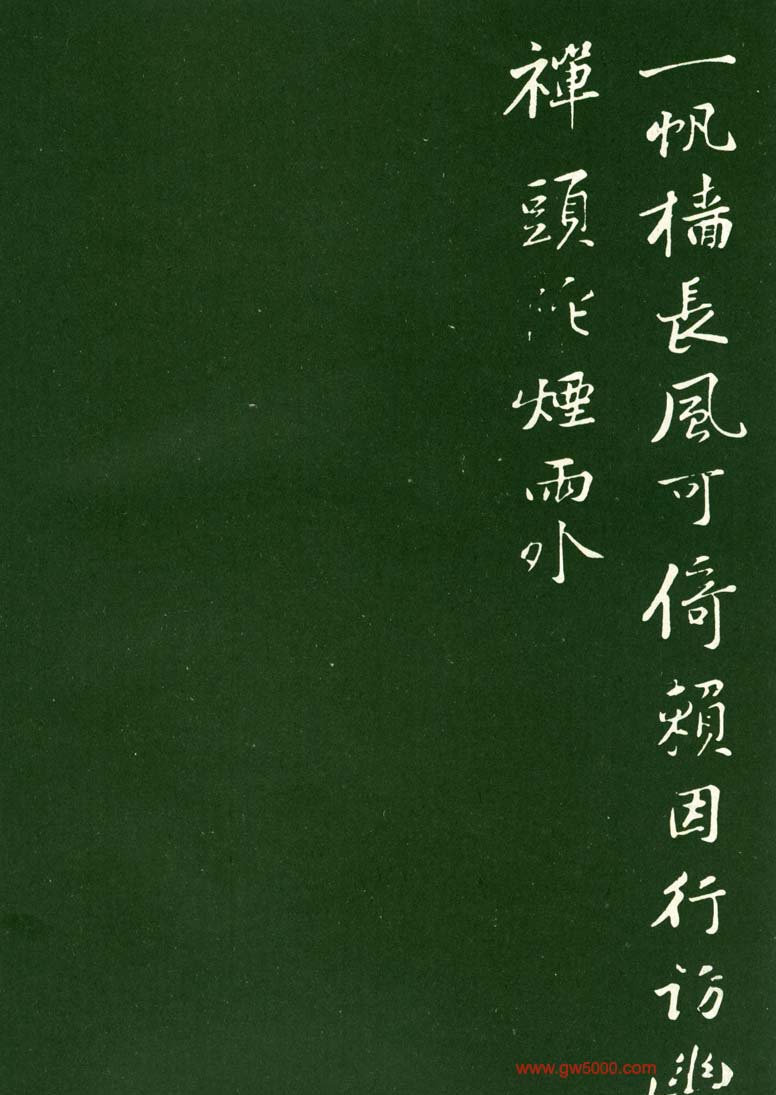 一帆樯長風可倚賴因行访幽
禪頭陀煙雨外
www.gw5000.com